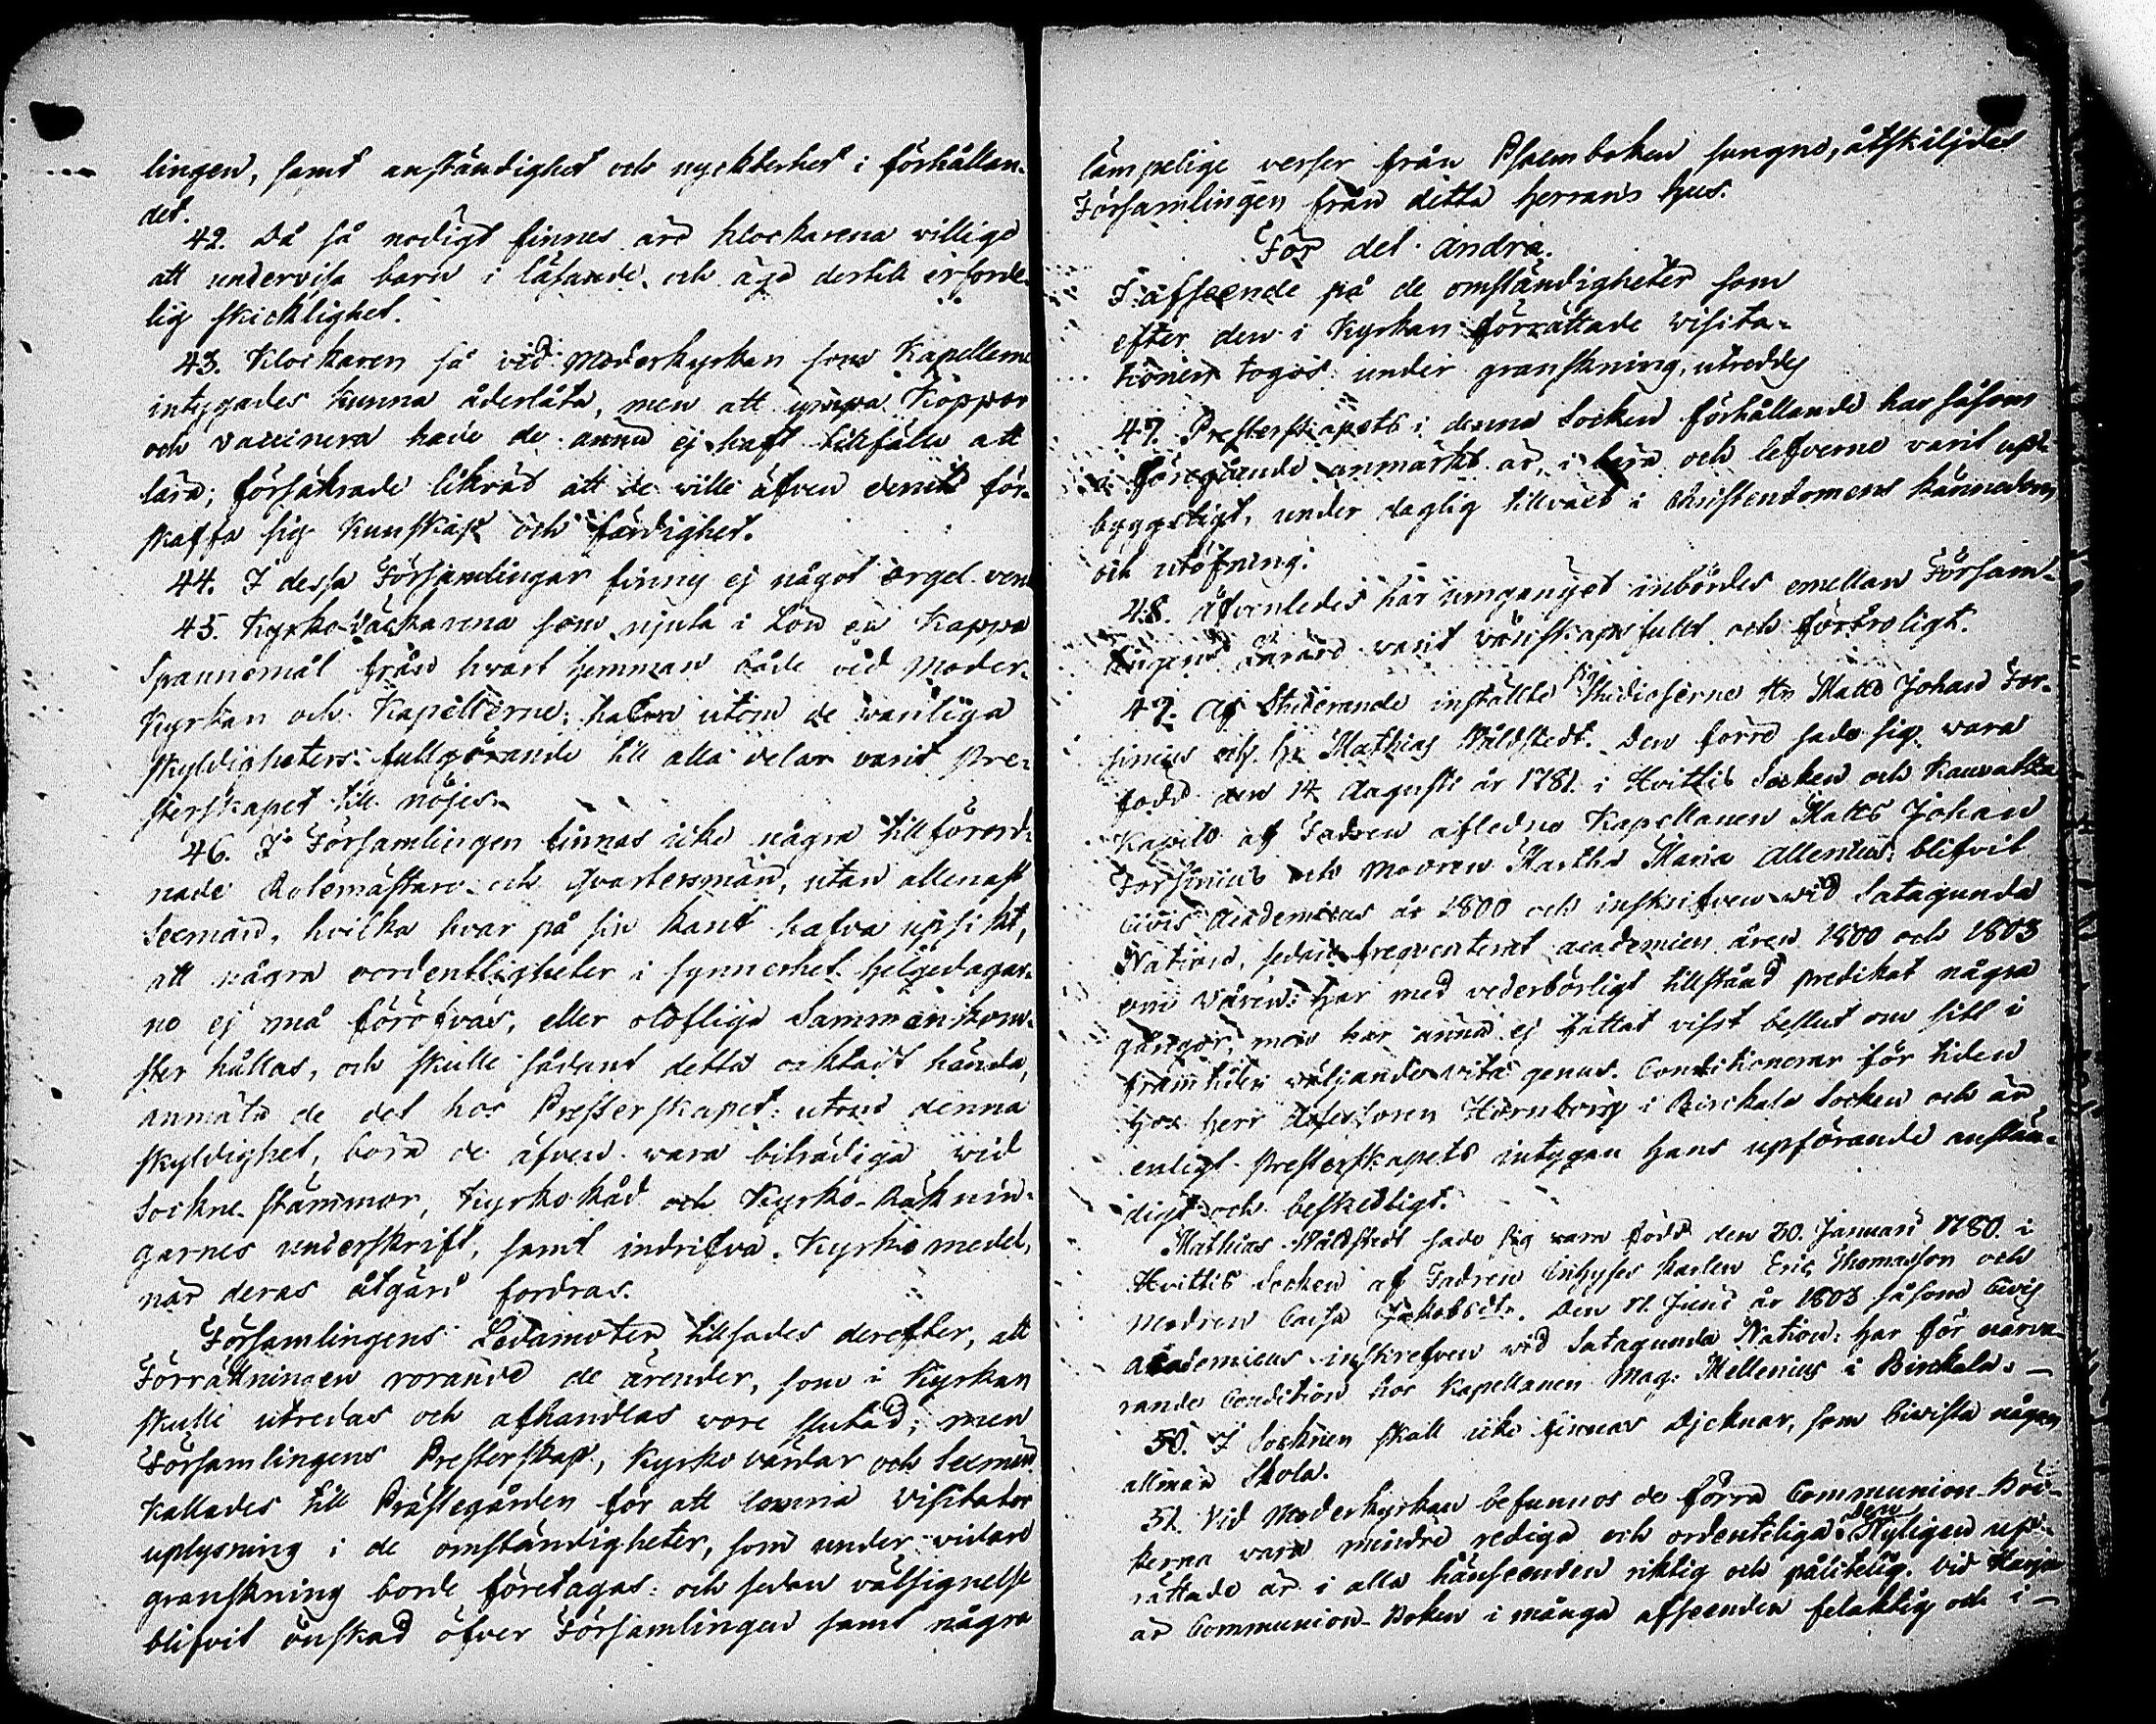 lingen, samt anständighet och nyckterhet i förhållan-
det.
42. Då så nödigt finnes äro klockarena villige
att undervisa barn i läsande, och äga dertill erforde-
lig skicklighet.
43. Klockaren så vid Moderkyrkan som Kapellerne
intygades kunna åderlåta, men att ympa Koppor
och vaccinera hade de ännu ej haft tillfälle att
lära; försäkrade likväl att de wille äfven deruti för-
skaffa sig kunskap och färdighet.
44. I dessa Församlingar finnes ej något orgel verk
45. Kyrko-Väcktarena som njuta i Lön en Kappa
Spannemål från hvart hemman både vid Moder-
Kyrkan och Kapellerne; hafva utom de vanliga
skyldigheters fullgörande till alla delar varit Pre-
sterskapet till nöjes.
46. I Församlingen finnas icke några tillförord-
nade Rotemästare och Qvartersmän, utan allenast
Sexmän, hvilka hvar på sin kant hafva upsikt,
att några oordentligheter i synnerhet helgedagar-
ne ej må föröfvas, eller olofliga Sammankom-
ster hållas, och skulle sådant detta oaktadt hända,
anmäla de det hos Presterskapet: utom denna
skyldighet, böra de äfven vara biträdiga wid
Sockne-stämmor, Kyrkoråd och Kyrko-Räknin-
garnes underskrift, samt indrifva Kyrkomedel,
när deras åtgärd fordras.
Församlingens Ledamöter tillsades derefter, att
Förrättningen rörande de ärender, som i Kyrkan
skulle utredas och afhandlas vore slutad; men
Församlingens Presterskap, Kyrkovärdar och Sexmän
kallades till Prästegården för att lemna Visitator
uplysning i de omständigheter, som under vidare
granskning borde företagas: och sedan välsignelse
blifvit önskad öfver Församlingen samt några
lämpelige verser från Psalmboken sungne, åtskiljdes
Församlingen från detta Herrans hus.
För det andra.
I afseende på de omständigheter som
efter den i Kyrkan förrättade visita-
tionen togos under granskning, utreddes
47. Presterskapets i denna Socken förhållande har såsom
i föregående anmärkt är, i lära och lefverne varit up-
byggeligt, under daglig tillväxt i Christendomens kännedom
och utöfning.
48. Äfvenledes har umgänget inbördes emellan Försam-
lingens Lärare varit vänskapsfullt och förtroligt.
49. Af Studerande inställte sig Studioserne Hr Matts Johan For-
sinius och Hr Mathias Wåldstedt. Den förre sade sig vara
född den 14 Augusti år 1781 i Hvittis Socken och Kauvatsa
Kapell af Fadren afledne Kapellanen Matts Johan
Forsinius och Modren Martha Maria Allenius; blifvit
Civis Academicus år 1800 och inskrifven wid Satagunda
Nation, sedan frequenterat academien åren 1800 och 1803
om Våren: Har med vederbörligt tillstånd predikat några
gånger, men har ännu ej fattat visst beslut om sitt i
framtiden väljande vitæ genus. Conditionerar för tiden
hos Herr Assessoren Hörnborg i Birckala Socken och är
enligt Presterskapets intygan hans upförande anstän-
digt och beskedligt.
Mathias Wåldstedt sade sig vara född den 30. Januari 1780. i
Hvittis Socken af Fadren Inhyses karlen Eric Thomasson och
Modren Caisa Jakobsdr. Den 11. Junii år 1803 såsom Civis
academicus inskrefven vid Satagunda Nation; har för närva-
rande Condition hos Kapellanen Mag. Mellenius i Birckala. —
50. I Socknen skall icke finnas Djeknar, som bivista någon
allmän Skola.
51. Vid Moderkyrkan befunnos de förra Communion-Böc-
kerna vara mindre rediga och ordenteliga: Den nyligen up-
rättade är i alla hänseenden riktig och pålitelig. Vid Harju
är Communion-Boken i många afseenden felaktig och i —